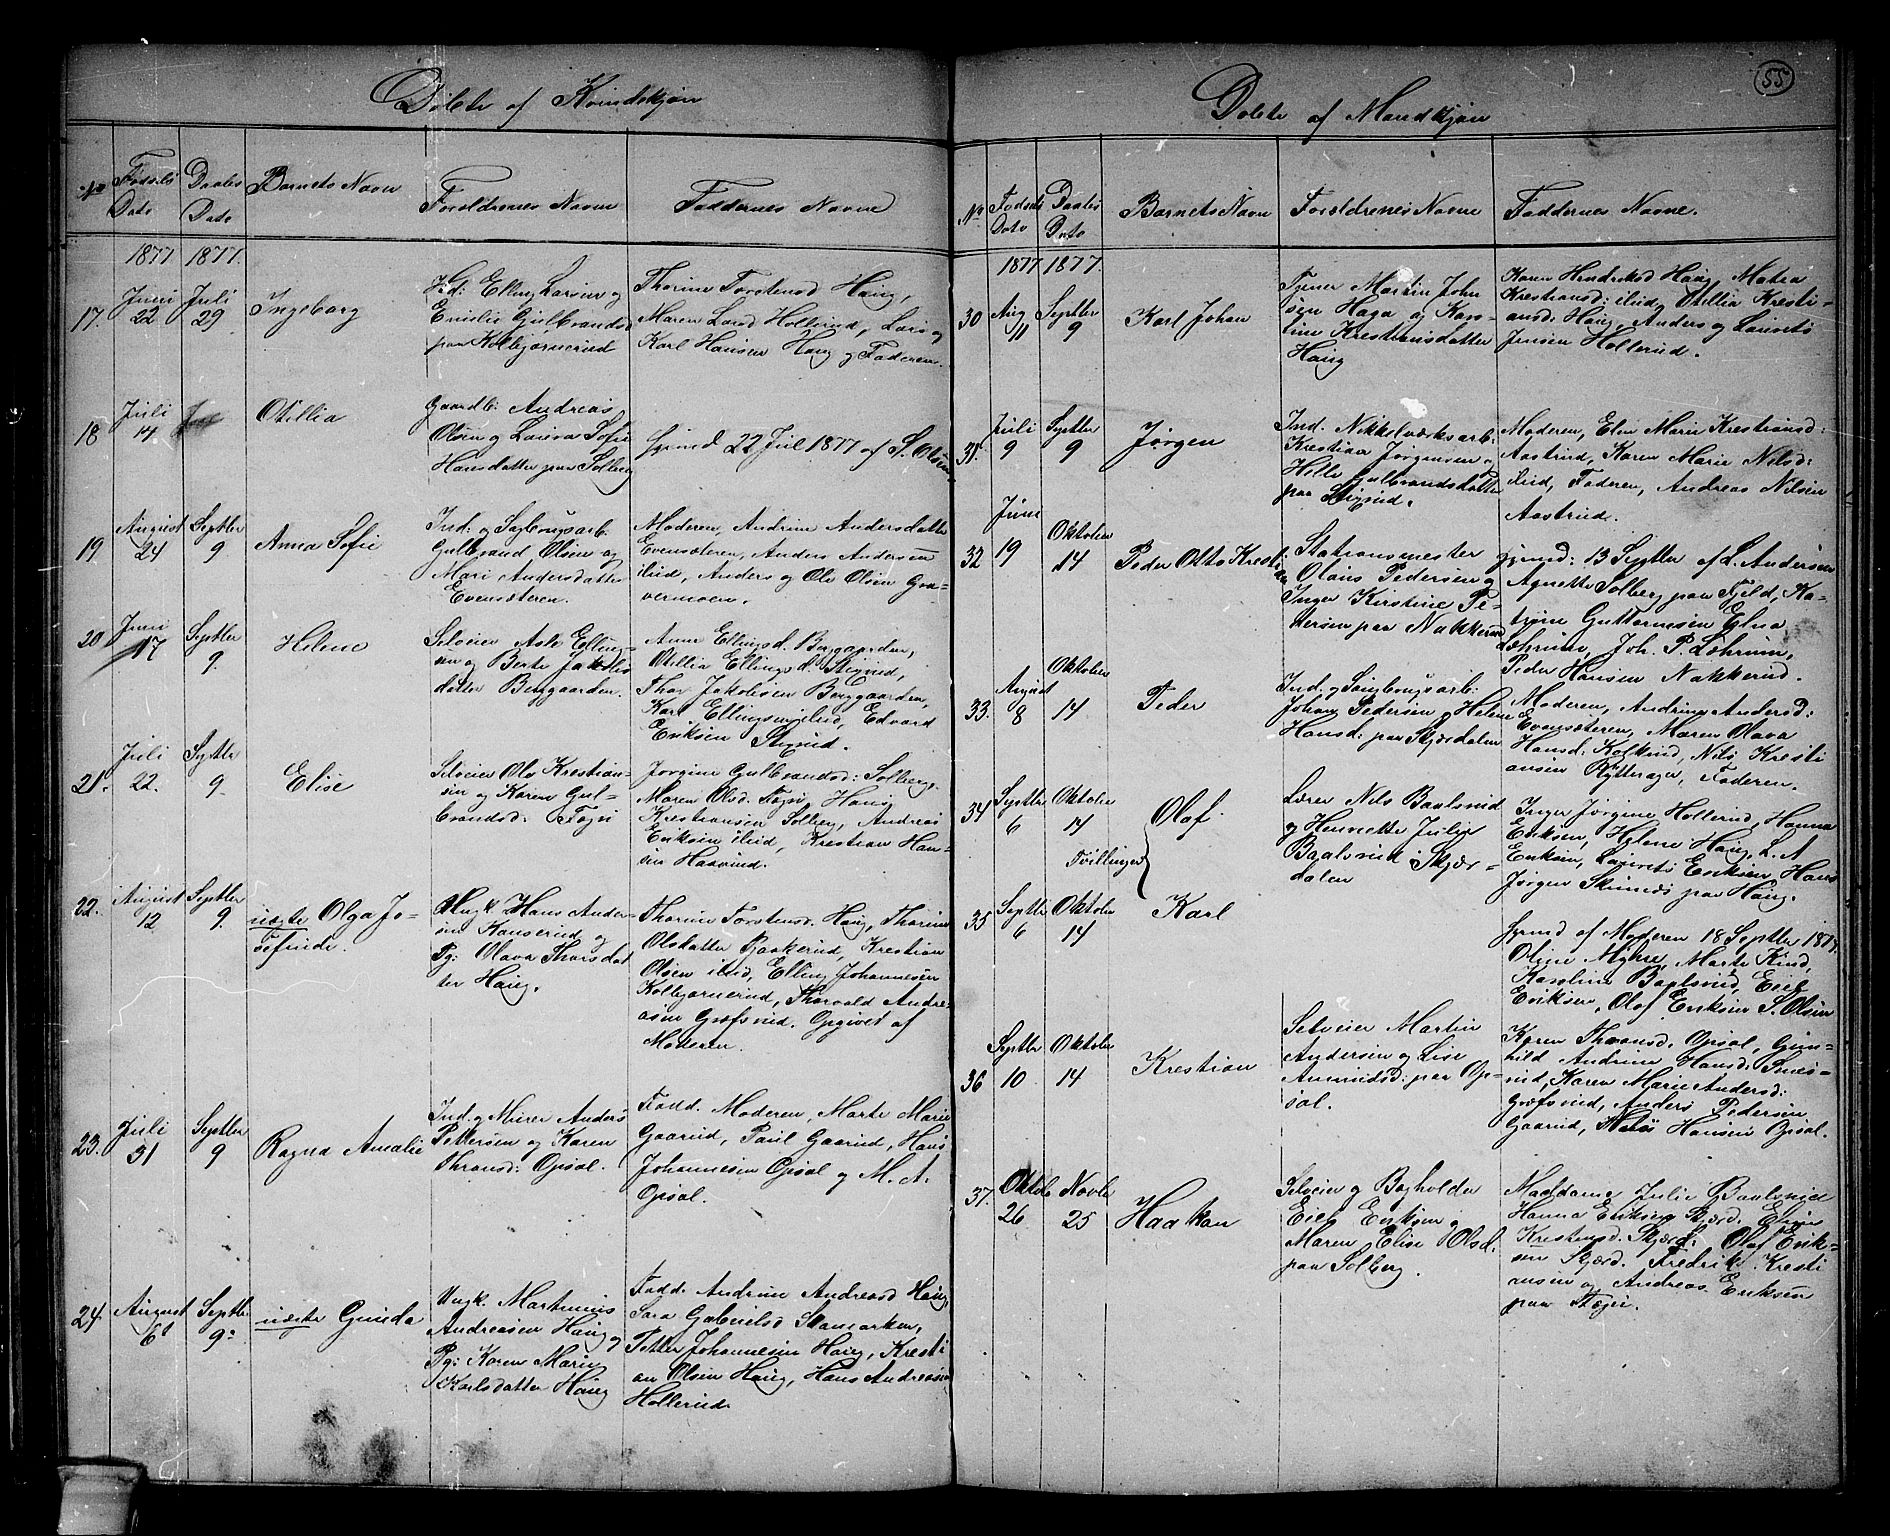 Døbte af Kvindekjøn
No
Fødsels Dato
Daabs Dato
Barnets Navn
Forældrenes Navne
Faddernes Navne
1877 1877.
17. Juni 22 Juli 29 Ingeborg
Hd: Elling Larsen og
Gulbrandsd
paa Kolbjørnerud
Thorine Torstensd Haug,
Maren Larsd Hollerud, Lars og
Karl Hansen Haug og Faderen.
18 Juli 14 Otillia
Gaardb: Andreas
Olsen og Laura Sofie
Hansdatter paa Solberg
Hjemd 22 Jul 1877 af S. Olsen
19 August 24 Septbr 9. Anna Sofie
Ind: og Sagbrugsarb.
Gulbrand Olsen og
Mari Andersdatter
Evensæteren.
Moderen, Andrine Andersdatter
Evensæteren, Anders Andersen
ibid, Anders og Ole Olsen Gra-
vermoen.
20 Juni 17 Septbr 9. Helene
Selveier Asle Elling-
sen og Berte Jakobs
datter Berggaarden.
Anne Ellingsd. Berggaarden,
Otillia Ellingsd. Stigrud,
Thor Jakobsen Berggaarden,
Karl Ellingsen ibid, Edvard
Eriksen Stigrud.
21. Juli 22. Septbr 9. Elise
Selveier Ole Krestian-
sen og Karen Gul-
brandsd: Togri
Jørgine Gulbrandsd: Solberg.
Maren Olsd. Togri, Hans
Krestiansen Solberg, Andreas
Eriksen ibid, Krestian Han-
sen Haavrud.
22. August 12 Septbr 9. uægte Olga Jo-
sefine.
Ungk. Hans Ander
sen Hanserud og
Pg: Olava Thorsdat
ter Haug.
Thorine Torstensd. Haug, Thorine
Olsdatter Baakerud, Krestian
Olsen ibid, Elling Johannesen
Kolbjørnerud, Thorvald Andre-
asen Græfsrud. Opgivet af
Moderen.
23. Juli 31 Septbr 9 Ragna Amalie
Ind. og Murer Anders
Pettersen og Karen
Thronsd: Opsal.
Fadd. Moderen, Marte Marie
Gaarud, Paul Gaarud, Hans
Johannesen Opsal og M. A.
Opsal.
24 August 6 Septbr 9 uægte Gunda
Ungk. Martinius
Andreasen Haug og
Pg: Karen Marie
Karlsdatter Haug
Fadd. Andrine Andreasd Haug,
Sara Gabrielsd Skamarken,
Petter Johannesen Haug, Kresti
an Olsen Haug, Hans Andreasen
Hollerud.
55
Døbte af Mandkjøn
No
Fødsels Dato
Daabs Dato
Barnets Navn
Forældrenes Navne
Faddernes Navne.
1877 1877.
30 Aug 11 Septbr 9 Karl Johan
Tjener Martin Johan
sen Haga og Karo-
line Krestiansdatter
Haug
Karen Hendriksd Haug, Matea
Krestiansd: ibid, Otillia Kresti-
ansd: Haug, Anders og Lauritz
Jensen Hollerud.
31. Juli 9 Septbr 9 Jørgen
Ind. Nikkelværksarb.
Krestian Jørgensen og
Helle Gulbrandsdatter
paa Stigrud.
Moderen, Elen Marie Krestiansd:
Aastrud, Karen Marie Nilsd:
ibid, Faderen, Andreas Nilsen
Aastrud.
32 Juni 19 Oktober 14 Peder Otto Kresti
an
Stationsmester
Olaus Pedersen og
Inger Kirstine Pe-
dersen paa Nakkerud
Hjemd: 13 Septbr af L. Andersen
Agnette Solberg paa Fjeld, Ka-
trine Guttormsen, Elna
Løhrum, Joh. P. Løhrum,
Peder Hansen Nakkerud.
33. August 8 Oktober 14 Peder
Ind. og Saugbrugsarb:
Johan Pedersen og Helene
Hansd: paa Skjærdalen
Moderen, Andrine Andersd:
Evensæteren, Maren Olava
Hansd: Nils Kresti
ansen Rytterager, Faderen.
34 Septbr 6 Oktober 14 Olaf.
Tvillinger
Lærer Nils Baalsrud
og Henriette Julie
Baalsrud. Skjær-
dalen
Inger Jørgine Hollerud, Hanna
Eriksen, Helene Haug, L. A
Eriksen, Lauritz Eriksen, Hans
Jørgen paa Haug.
35 Septbr 6 Oktober 14 Karl
Hjemd af Moderen 18 Septbr 1877.
Oline Myhre, Marte Kind,
Karoline Baalsrud, Erik
Eriksen, Olaf Eriksen S. Olsen
36 Septbr 10 Oktober 14 Krestian
Selveier Martin
Andersen og Lise
Amundsd: paa Op-
sal.
Karen Thronsd. Opsal, Gun-
hild Andrine Hansd:
rud, Karen Marie Andersd:
Græfsrud, Anders Pedersen
Gaarud, Hans Hansen Opsal.
37. Oktob 26 Novbr 25 Haakon
Selveier og Bogholder
Erik Eriksen og
Maren Elise Olsd.
paa Solberg.
Maddame Julie Baalsrud
Hanna Eriksen Skjærd. Elise
Krestensd. Skjærd: Olaf Erik-
sen Skjærd. Fredrik Kresti
ansen og Andreas Eriksen
paa Togri.